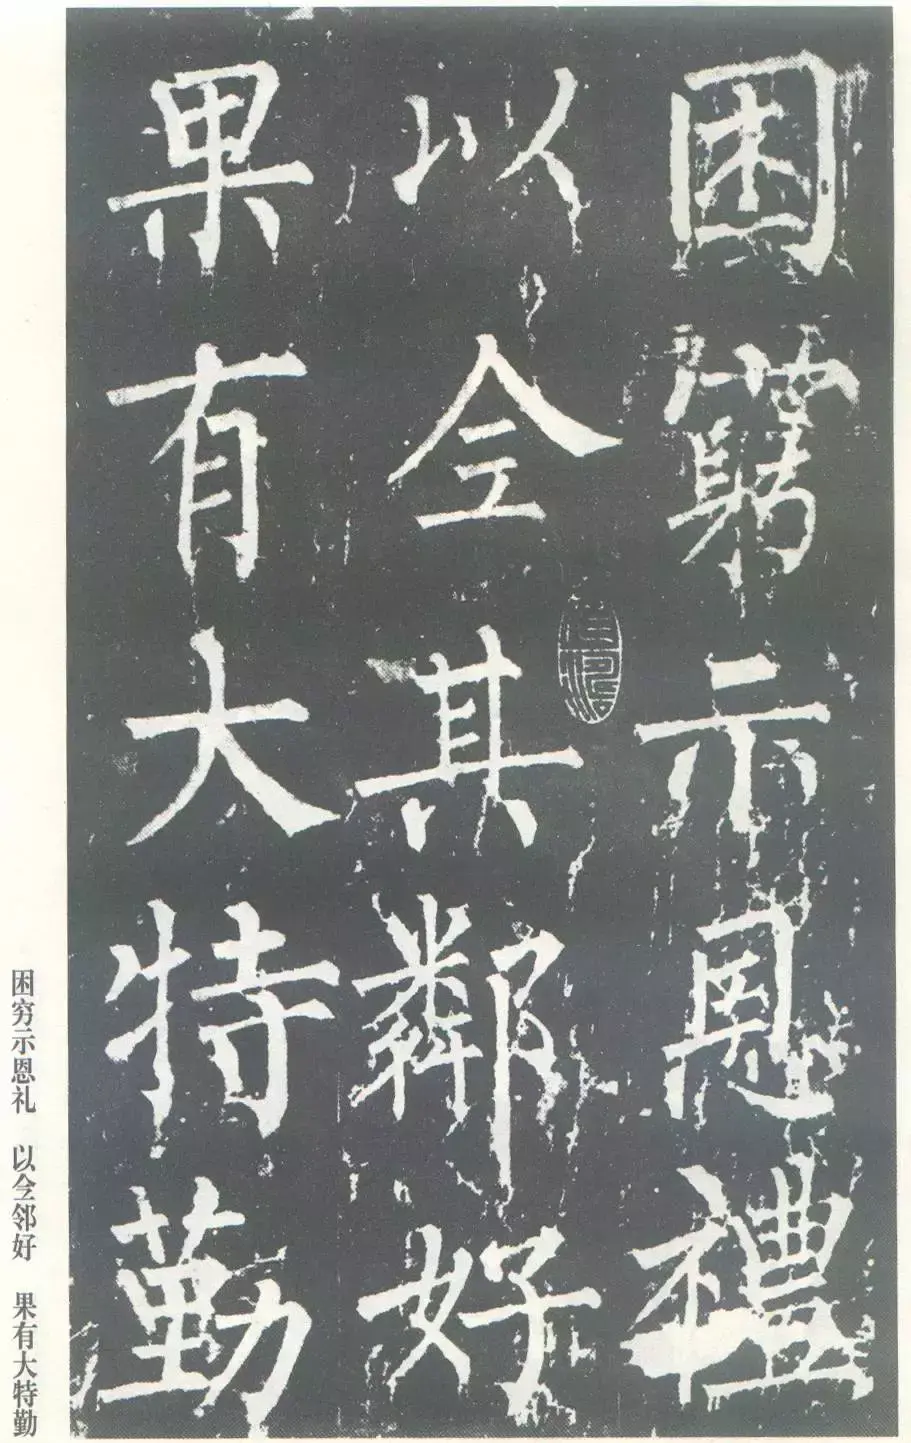 困窮示恩禮
以全其鄰好
果有大特勤
困穷示恩礼 以全邻好 果有大特勤